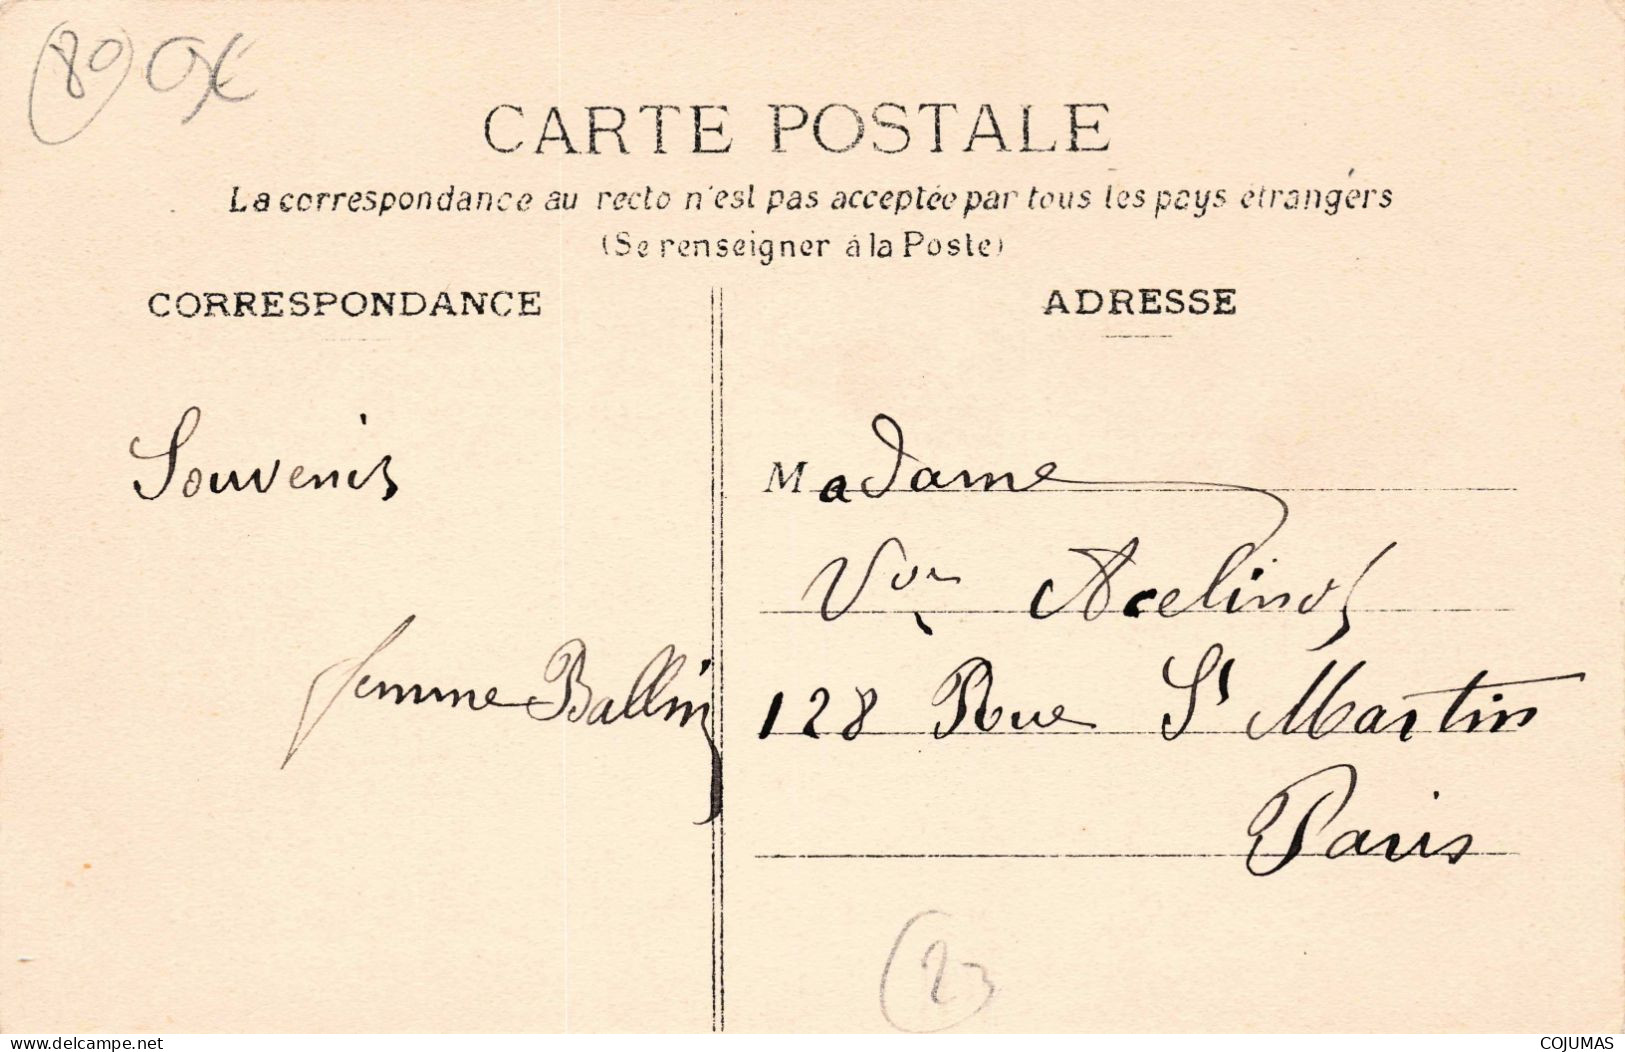 80
CARTE POSTALE
La correspondance au recto n'est pas acceptée par tous les pays étrangers
(Se renseigner à la Poste)
CORRESPONDANCE
Souvenirs
femme Ballin
ADRESSE
Madame
Vve Acelinos
128 Rue St Martin
Paris
23
www.delcampe.net
COJUMAS